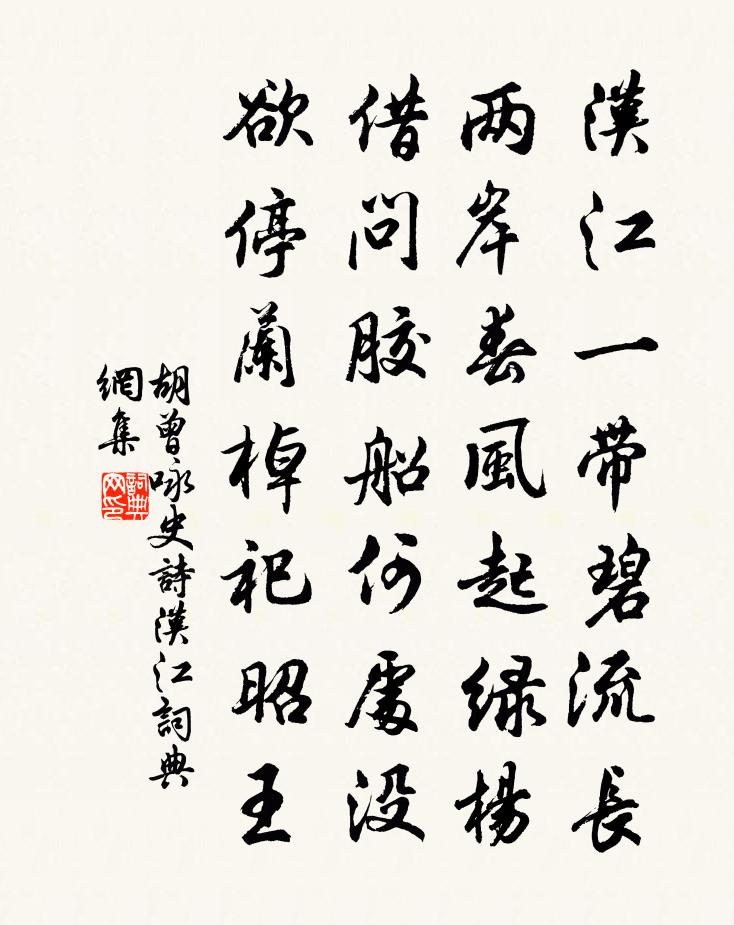 漢江一帶碧流長
两岸春風起緑楊
借問膠船何處没
欲停蘭棹祀昭王
胡曾咏史詩漢江詞典
網集
詞典
网印